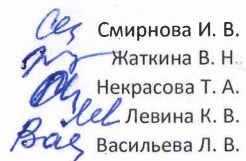 Смирнова И. В.
Жаткина В. Н.
Некрасова Т. А.
Левина К. В.
Васильева Л. В.